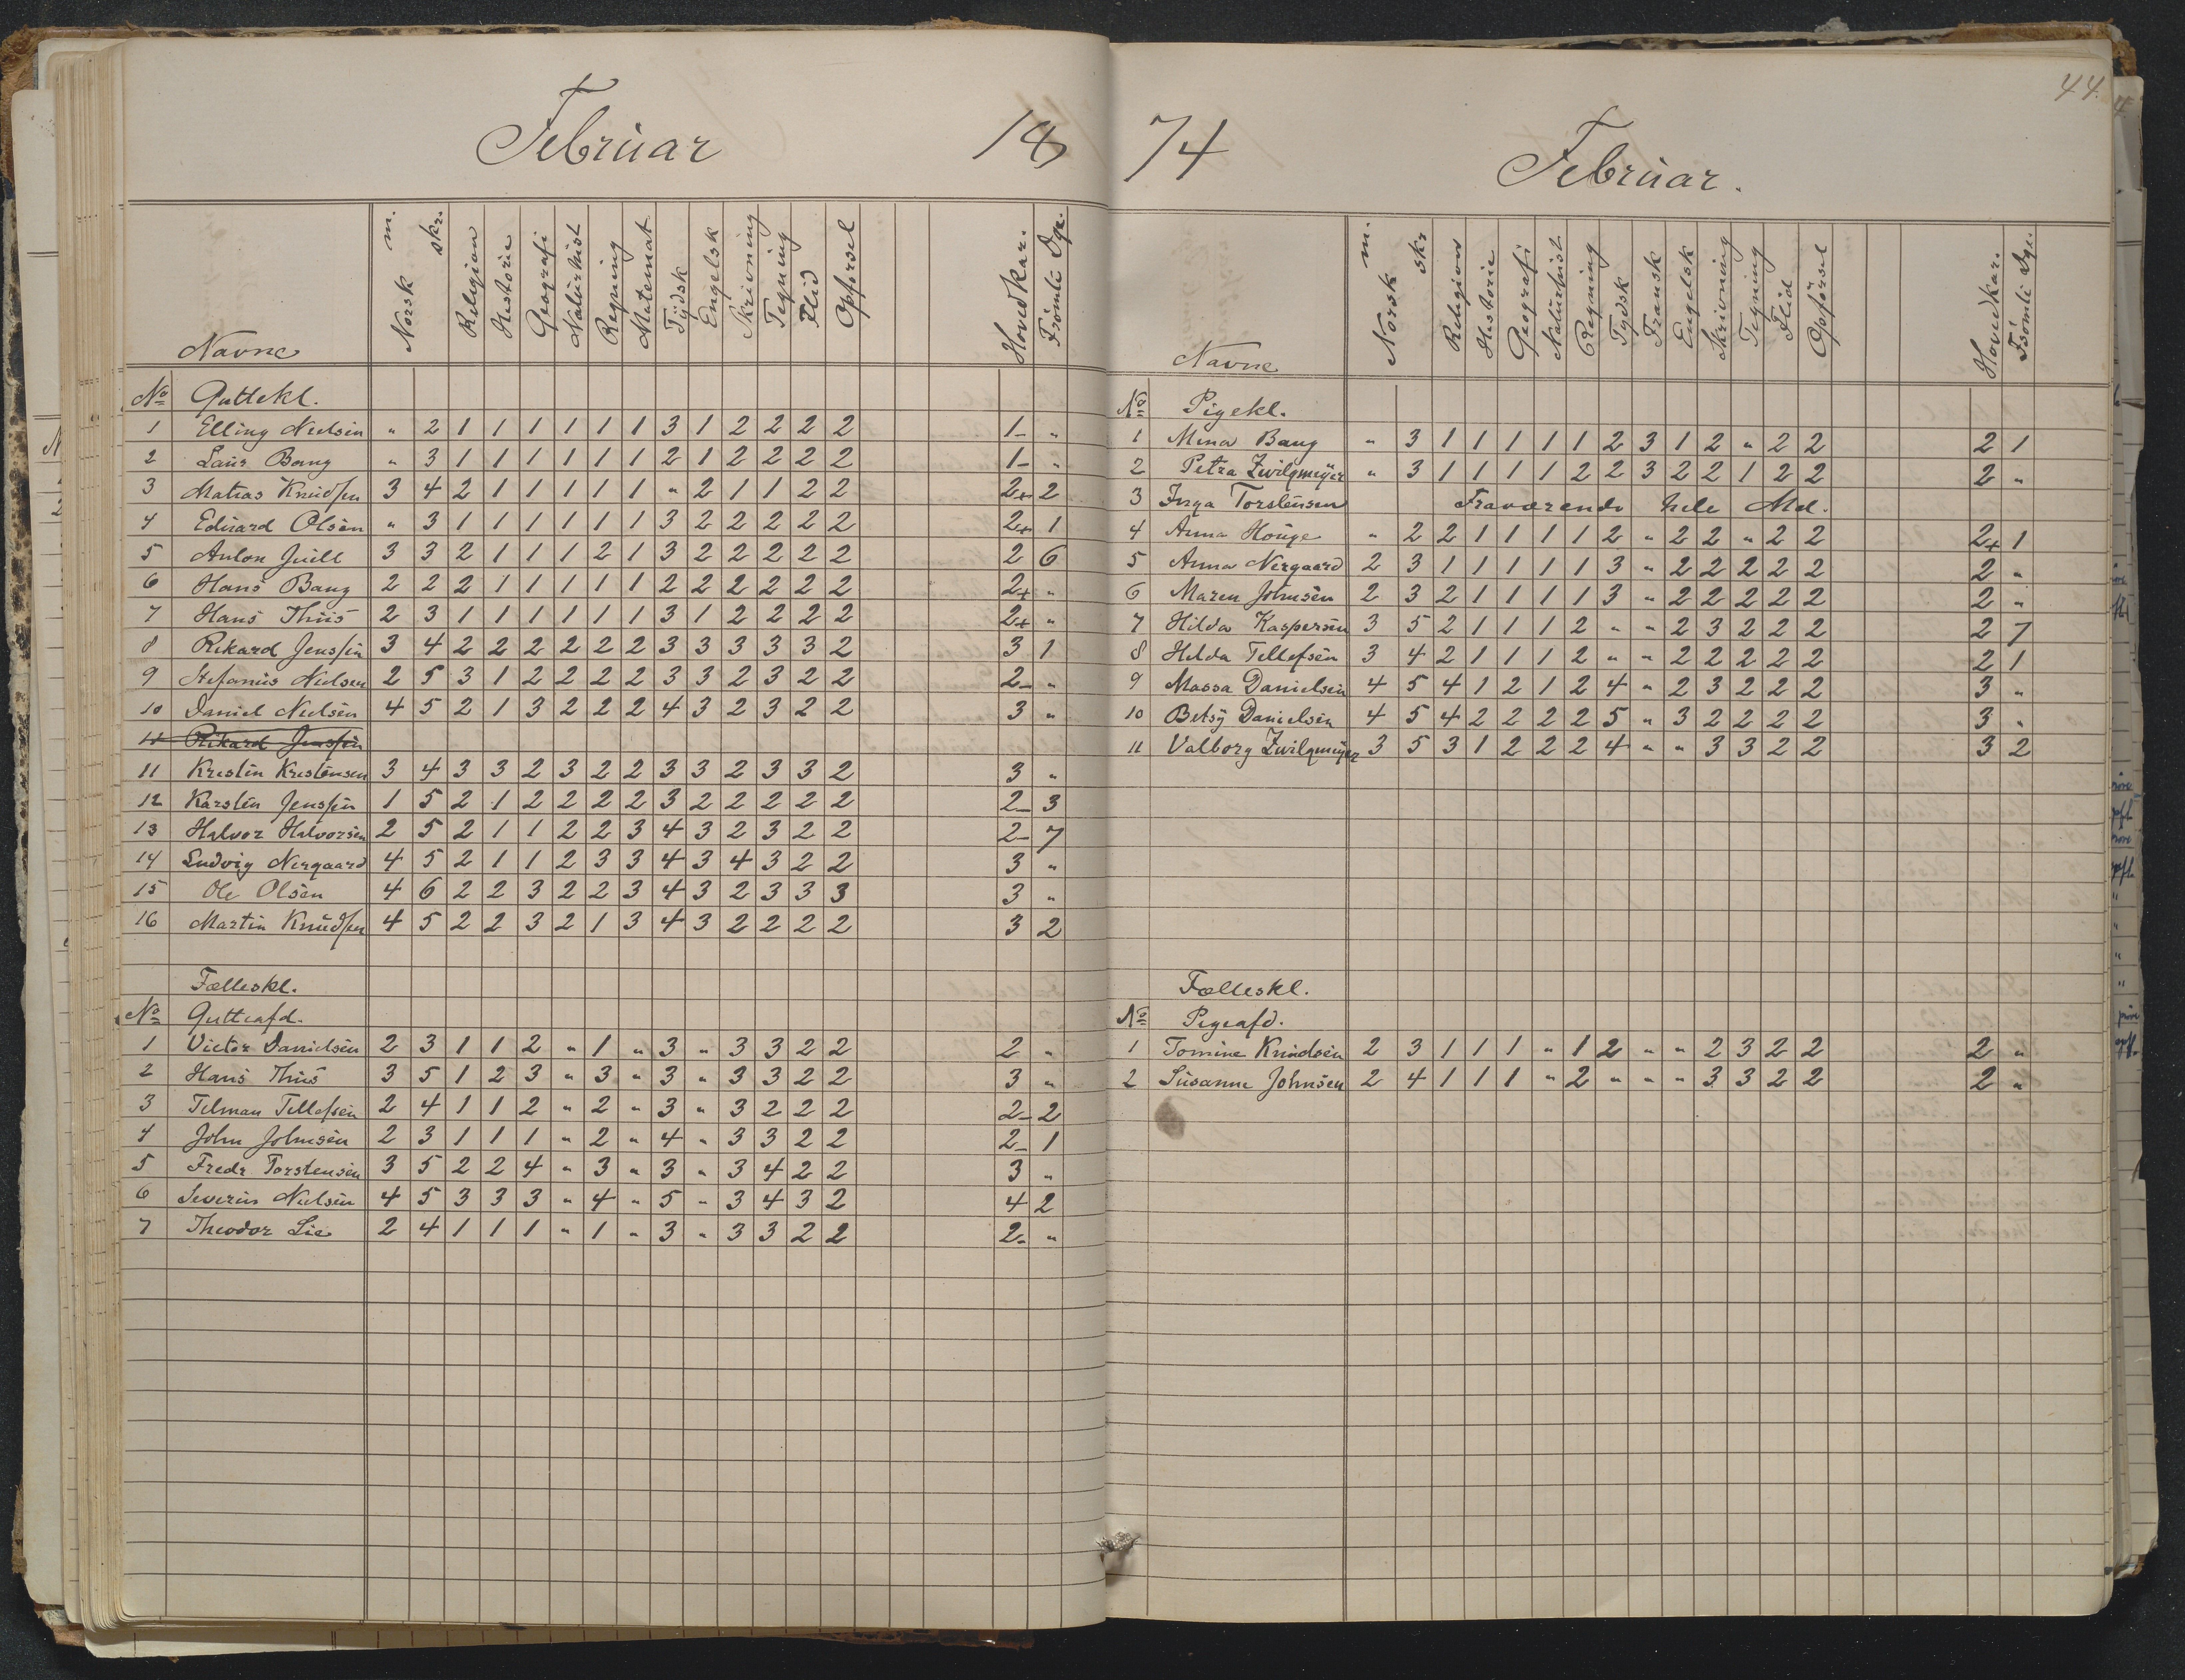 44.
Februar 18
Navne Norsk m. skr. Religion Historie Geografi Naturhist Regning Matemat Tydsk Engelsk Skrivning Tegning Flid Opførsel Hovedkar. Frömti Dge.
No Guttekl.
1 Elling Nielsen " 2 1 1 1 1 1 1 3 1 2 2 2 2 1- "
2 Laur Bang " 3 1 1 1 1 1 1 2 1 2 2 2 2 1- "
3 Matias Knudsen 3 4 2 1 1 1 1 1 " 2 1 1 2 2 2+ 2
4 Eduard Olsen " 3 1 1 1 1 1 1 3 2 2 2 2 2 2+ 1
5 Anton Juell 3 3 2 1 1 1 2 1 3 2 2 2 2 2 2 6
6 Hans Bang 2 2 2 1 1 1 1 1 2 2 2 2 2 2 2+ "
7 Hans Thiis 2 3 1 1 1 1 1 1 3 1 2 2 2 2 2+ "
8 Rikard Jenssen 3 4 2 2 2 2 2 2 3 3 3 3 3 2 3 1
9 Stefanus Nielsen 2 5 3 1 2 2 2 2 3 3 2 3 2 2 2- "
10 Daniel Nielsen 4 5 2 1 3 2 2 2 4 3 2 3 2 2 3 "
11 Rikard Jenssen
11 Kristin Kristensen 3 4 3 3 2 3 2 2 3 3 2 3 3 2 3 "
12 Karsten Jenssen 1 5 2 1 2 2 2 2 3 2 2 2 2 2 2- 3
13 Halvor Halvorsen 2 5 2 1 1 2 2 3 4 3 2 3 2 2 2- 7
14 Ludvig Nergaard 4 5 2 1 1 2 3 3 4 3 4 3 2 2 3 "
15 Ole Olsen 4 6 2 2 3 2 2 3 4 3 2 3 3 3 3 "
16 Martin Knudsen 4 5 2 2 3 2 1 3 4 3 2 2 2 2 3 2
Fælleskl.
No Gutteafd.
1 Victor Danielsen 2 3 1 1 2 " 1 " 3 " 3 3 2 2 2 "
2 Hans Thiis 3 5 1 2 3 " 3 " 3 " 3 3 2 2 3 "
3 Tilman Tellefsen 2 4 1 1 2 " 2 " 3 " 3 2 2 2 2- 2
4 John Johnsen 2 3 1 1 1 " 2 " 4 " 3 3 2 2 2- 1
5 Fredr Torstensen 3 5 2 2 4 " 3 " 3 " 3 4 2 2 3 "
6 Severin Nielsen 4 5 3 3 3 " 4 " 5 " 3 4 3 2 4 2
7 Theodor Lie 2 4 1 1 1 " 1 " 3 " 3 3 2 2 2- "
74 Februar.
Navne Norsk m. skr Religion Historie Geografi Naturhist. Regning Tydsk Fransk Engelsk Skrivning Tegning Flid Opførsel Hovedkar. Frömti Dge.
No Pigekl.
1 Mina Bang " 3 1 1 1 1 1 2 3 1 2 " 2 2 2 1
2 Petra Zwilgmeyer " 3 1 1 1 1 2 2 3 2 2 1 2 2 2 "
3 Inga Torstensen Fraværende hele Md.
4 Anna Houge " 2 2 1 1 1 1 2 " 2 2 " 2 2 2+ 1
5 Anna Nergaard 2 3 1 1 1 1 1 3 " 2 2 2 2 2 2 "
6 Maren Johnsen 2 3 2 1 1 1 1 3 " 2 2 2 2 2 2 "
7 Hilda Kaspersen 3 5 2 1 1 1 2 " " 2 3 2 2 2 2 7
8 Hilda Tellefsen 3 4 2 1 1 1 2 " " 2 2 2 2 2 2 1
9 Massa Danielsen 4 5 4 1 2 1 2 4 " 2 3 2 2 2 3 "
10 Betsy Danielsen 4 5 4 2 2 2 2 5 " 3 2 2 2 2 3 "
11 Valborg Zwilgmeyer 3 5 3 1 2 2 2 4 " " 3 3 2 2 3 2
Fælleskl.
No Pigeafd.
1 Tomine Knudsen 2 3 1 1 1 " 1 2 " " 2 3 2 2 2 "
2 Susanne Johnsen 2 4 1 1 1 " 2 " " " 3 3 2 2 2 "